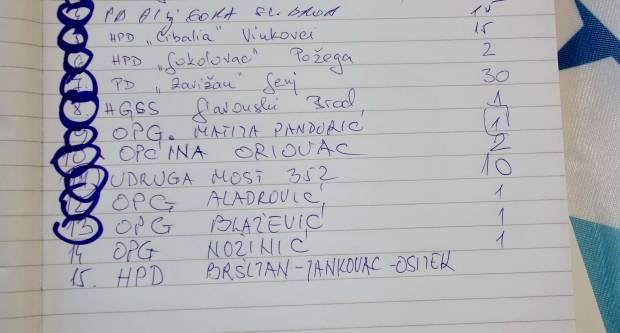 4 PD Dilj GORA SL. BROD 15
5 HPD „Cibalia" Vinkovci 15
6 HPD „Sokolovac" Požega 2
7 PD „Zavižan" Senj 30
8 HGSS Slavonski Brod, 1
9 OPG. MATIJA PANDURIĆ 1
10 OPĆINA ORIOVAC 2
11 UDRUGA MOST 352 10
12 OPG ALADROVIĆ, 1
13 OPG BLAŽEVIĆ 1
14 OPG NOŽINIĆ 1
15. HPD BRŠLJAN-JANKOVAC-OSIJEK